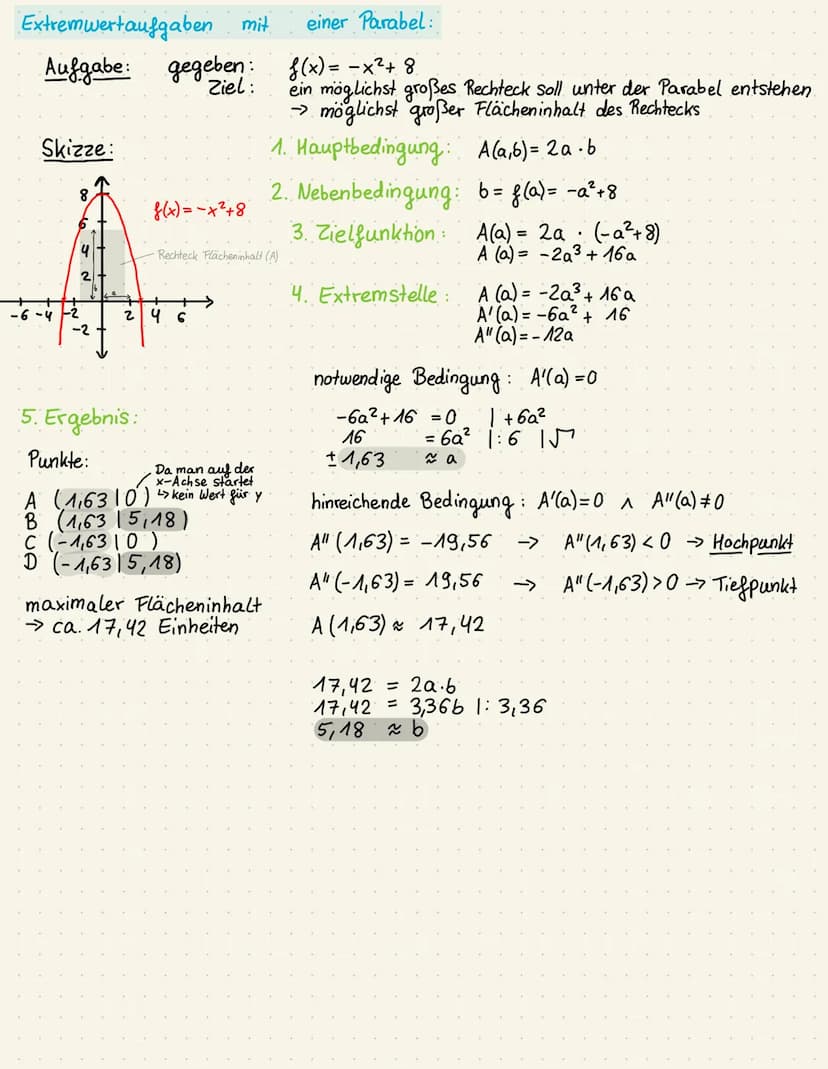 Extremwertaufgaben mit einer Parabel:
Aufgabe: gegeben: f(x) = -x²+ 8
Ziel: ein möglichst großes Rechteck soll unter der Parabel entstehen
→ möglichst großer Flächeninhalt des Rechtecks
Skizze:
8
6
4
2
-6 -4 -2 2 4 6
-2
b
a
f(x) = -x²+8
Rechteck Flächeninhalt (A)
1. Hauptbedingung: A(a,b) = 2a · b
2. Nebenbedingung: b = f(a) = -a²+8
3. Zielfunktion: A(a) = 2a · (-a²+8)
A (a) = -2a³ + 16a
4. Extremstelle: A (a) = -2a³ + 16a
A'(a) = -6a² + 16
A"(a) = - 12a
notwendige Bedingung: A'(a) = 0
-6a² + 16 = 0 | + 6a²
16 = 6a² |: 6 |√
± 1,63 ≈ a
hinreichende Bedingung: A'(a) = 0 ∧ A"(a) ≠ 0
A" (1,63) = -19,56 → A"(1,63) < 0 → Hochpunkt
A" (-1,63) = 19,56 → A"(-1,63) > 0 → Tiefpunkt
A (1,63) ≈ 17,42
17,42 = 2a·b
17,42 = 3,36b |: 3,36
5,18 ≈ b
5. Ergebnis:
Punkte:
Da man auf der
x-Achse startet
↳ kein Wert für y
A (1,63 | 0)
B (1,63 | 5,18)
C (-1,63 | 0 )
D (-1,63 | 5,18)
maximaler Flächeninhalt
→ ca. 17,42 Einheiten